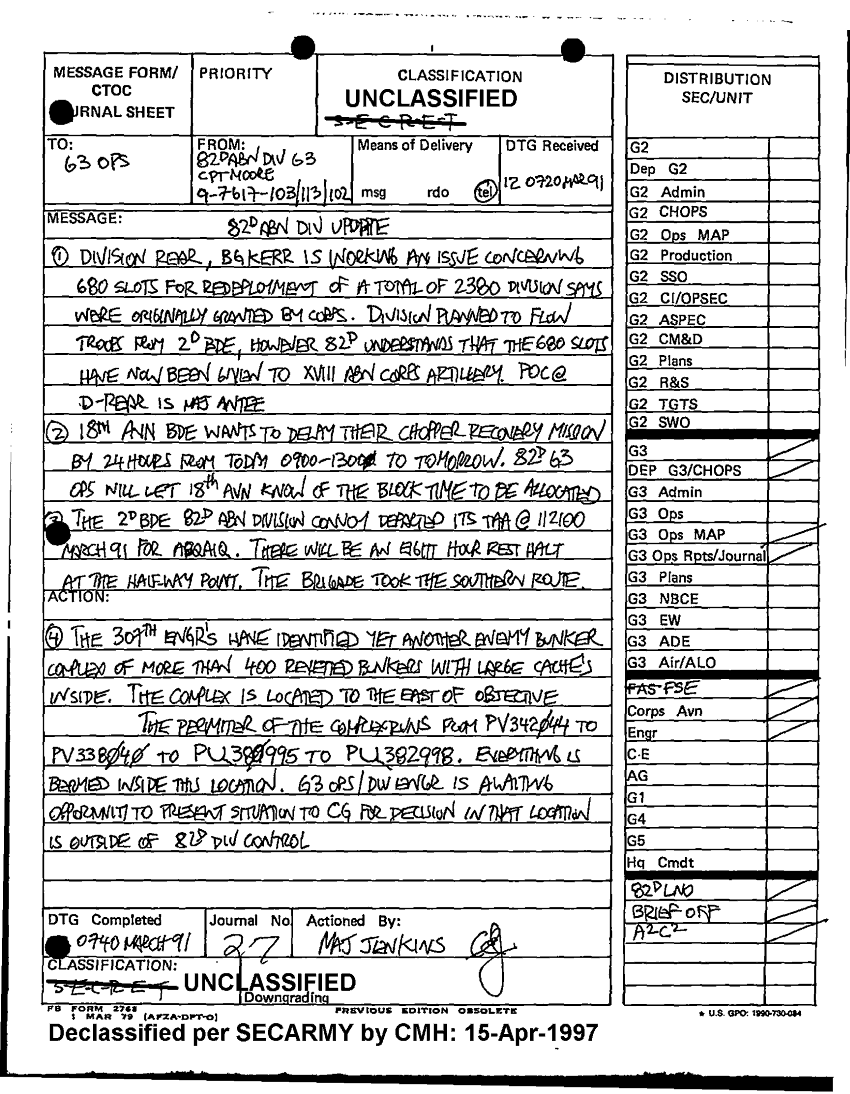 MESSAGE FORM/ CTOC
URNAL SHEET
PRIORITY
CLASSIFICATION
UNCLASSIFIED
S-E-C-R-E-T
TO:
G3 OPS
FROM:
82D ABN DIV G3
CPT MOORE
9-7617-103/113/102
Means of Delivery
msg rdo tel
DTG Received
12 0720 MAR 91
MESSAGE:
82D ABN DIV UPDATE
① DIVISION REAR, BG KERR IS WORKING AN ISSUE CONCERNING
680 SLOTS FOR REDEPLOYMENT OF A TOTAL OF 2380 DIVISION SAYS
WERE ORIGINALLY GRANTED BY CORPS. DIVISION PLANNED TO FLOW
TROOPS FROM 2D BDE, HOWEVER 82D UNDERSTANDS THAT THE 680 SLOTS
HAVE NOW BEEN GIVEN TO XVIII ABN CORPS ARTILLERY. POC @
D-REAR IS MAJ ANTEE
② 18TH AVN BDE WANTS TO DELAY THEIR CHOPPER RECOVERY MISSION
BY 24 HOURS FROM TODAY 0900-1300 TO TOMORROW. 82D G3
OPS WILL LET 18th AVN KNOW OF THE BLOCK TIME TO BE ALLOCATED
THE 2D BDE 82D ABN DIVISION CONVOY DEPARTED ITS TAA @ 112100
MARCH 91 FOR ABQAIQ. THERE WILL BE AN EIGHT HOUR REST HALT
AT THE HALF-WAY POINT. THE BRIGADE TOOK THE SOUTHERN ROUTE.
ACTION:
④ THE 307TH ENGR'S HAVE IDENTIFIED YET ANOTHER ENEMY BUNKER
COMPLEX OF MORE THAN 400 REVETED BUNKERS WITH LARGE CACHE'S
INSIDE. THE COMPLEX IS LOCATED TO THE EAST OF OBJECTIVE
THE PERMITER OF THE COMPLEX RUNS FROM PV342044 TO
PV338040 TO PU380995 TO PU382998. EVERYTHING IS
BERMED INSIDE THIS LOCATION. G3 OPS/DIV ENGR IS AWAITING
OPPORTUNITY TO PRESENT SITUATION TO CG FOR DECISION IN THAT LOCATION
IS OUTSIDE OF 82D DIV CONTROL
DTG Completed
0740 MARCH 91
Journal No.
27
Actioned By:
MAJ JENKINS
CLASSIFICATION:
S-E-C-R-E-T UNCLASSIFIED
Downgrading
FB FORM 2768
1 MAR 79 (AFZA-DPT-O)
PREVIOUS EDITION OBSOLETE
Declassified per SECARMY by CMH: 15-Apr-1997
DISTRIBUTION
SEC/UNIT
G2
Dep G2
G2 Admin
G2 CHOPS
G2 Ops MAP
G2 Production
G2 SSO
G2 CI/OPSEC
G2 ASPEC
G2 CM&D
G2 Plans
G2 R&S
G2 TGTS
G2 SWO
G3
DEP G3/CHOPS
G3 Admin
G3 Ops
G3 Ops MAP
G3 Ops Rpts/Journal
G3 Plans
G3 NBCE
G3 EW
G3 ADE
G3 Air/ALO
FAS FSE
Corps Avn
Engr
C-E
AG
G1
G4
G5
Hq Cmdt
82D LNO
BRIEF OFF
A2C2
★ U.S. GPO: 1990-730-084